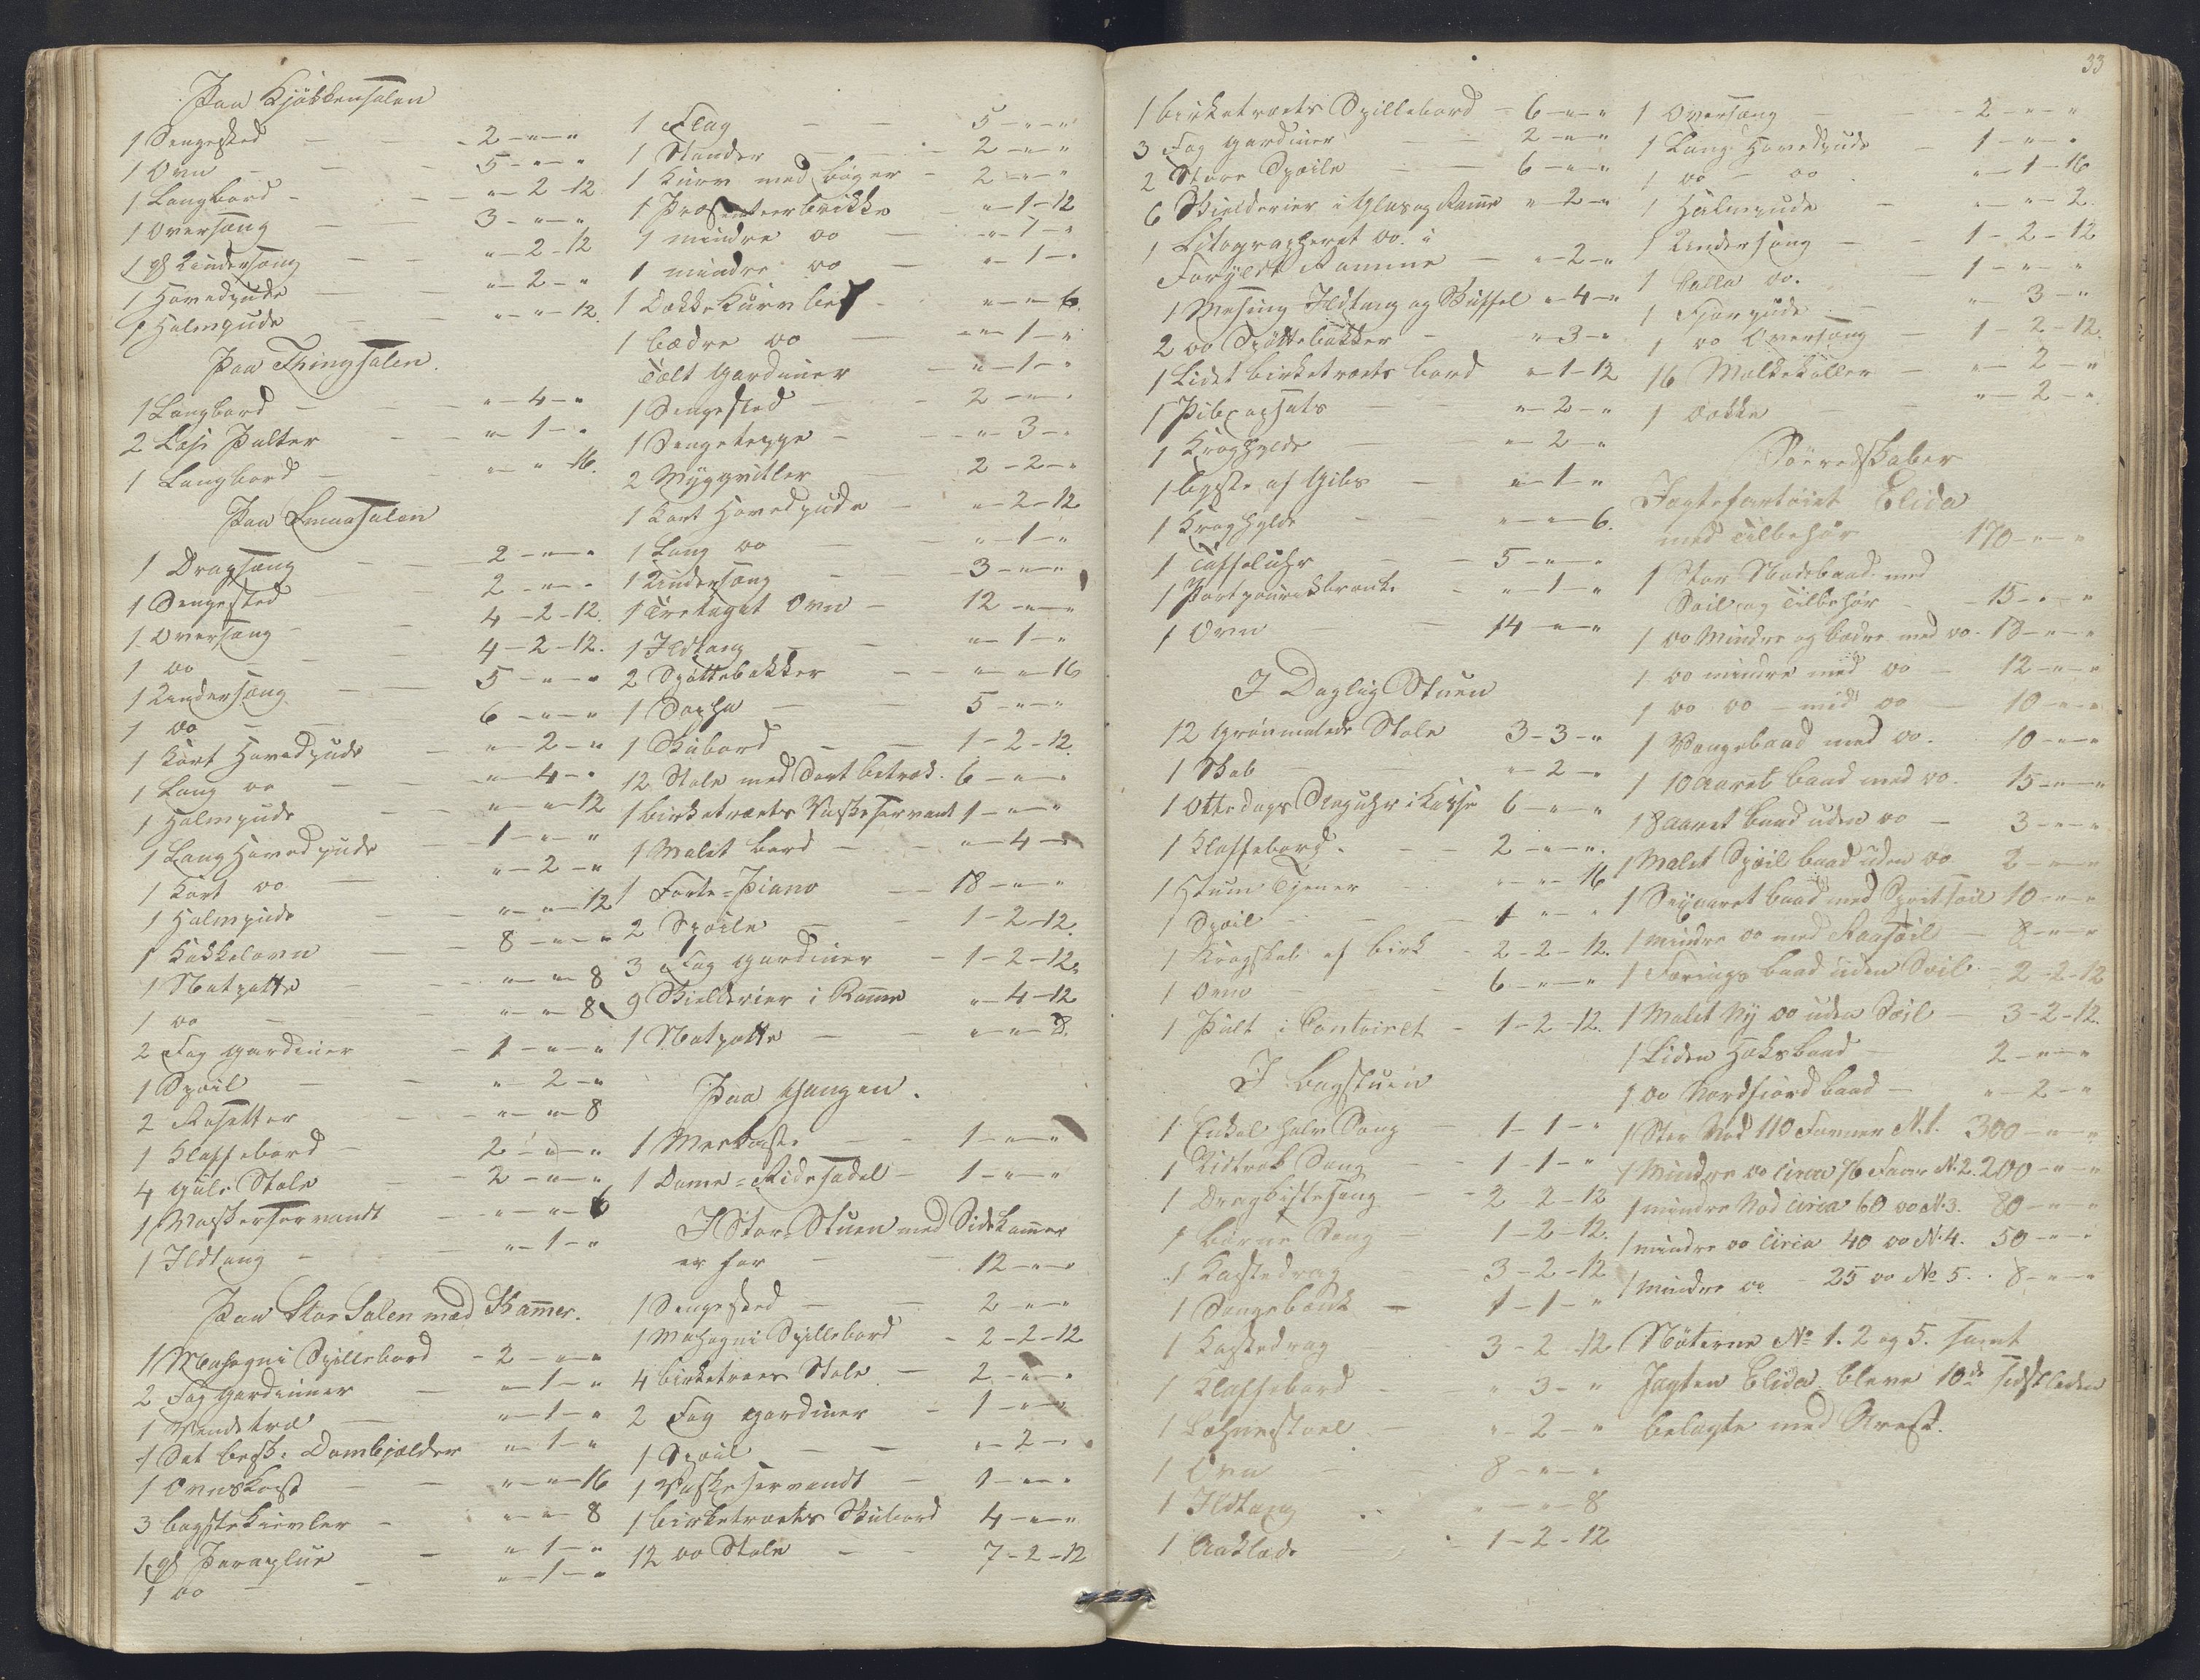 Paa Kjökkensalen
1 Sengested - - 2 - " - "
1 Ovn - - 5 - " - "
1 Langbord - - " - 2 - 12
1 Oversæng - 3 - " - "
1 gl Undersæng - - " - 2 - 12
1 Hovedpude - - " - 2 - "
1 Halmpude - - " - " - 12.
Paa Thingsalen.
1 Langbord - - " - 4 - "
2 Læse Pulter - - " - 1 - "
1 Langbord - - " - " - 16.
Paa Smaasalen
1 Dragsæng - - 2 - " - "
1 Sengested - - 2 - " - "
1 Oversæng - - 4 - 2 - 12.
1 do - - 4 - 2 - 12.
1 Undersæng - - 5 - " - "
1 do - - 6 - " - "
1 Kort Hovedpude - " - 2 - "
1 Lang do - - " - 4 - "
1 Halmpude - - " - " - 12
1 Lang Hovedpude - 1 - " - "
1 Kort do - - " - 2 - "
1 Halmpude - - " - " - 12
1 Kakkelovn - - 8 - " - "
1 Natpotte - - " - " - 8
1 do - - " - " - 8
2 Fag Gardiner - 1 - " - "
1 Speil - - " - 2 - "
2 Rosetter - - " - " - 8
1 Klaffebord - 2 - " - "
4 gule Stole - - 2 - " - "
1 Vaskerservandt - " - " - 6
1 Ildtang - - " - 1 - "
Paa Stor Salen med Kammer.
1 Mahogni Spillebord - 2 - " - "
2 Fag Gardinner - " - 1 - "
1 Vendetræ - " - 1 - "
1 Sæt besk: Dombjælder " - 1 - "
1 Ovnskost - - " - " - 16
3 bagstekievler - " - " - 8
1 gl Paraplue - " - 1 - "
1 do - - " - 1 - "
1 Flag - - 5 - " - "
1 Stander - - 2 - " - "
1 Kurv med bøger - 2 - " - "
1 Præsenteerbrikke - " - 1 - 12
1 mindre do - " - 1 - "
1 mindre do - " - 1 - "
1 Dække Kurv - " - " - 6.
1 bædre do - " - 1 - "
Tælt Gardiner - " - 1 - "
1 Sengested - - 2 - " - "
1 Sengeteppe - - " - 3 - "
2 Mygqvitler - 2 - 2 - "
1 Kort Hovedpude - " - 2 - 12
1 Lang do - - " - 1 - "
1 Undersæng - - 3 - " - "
1 Tretaget Ovn - 12 - " - "
1 Ildtang - - " - 1 - "
2 Spøttebakker - - " - " - 16
1 Sopha - - 5 - " - "
1 Skubord - - 1 - 2 - 12.
12 Stole med Sort betræk. 6 - " - "
1 birketræets Vaskeservant 1 - " - "
1 Malet bord - - " - 4 - "
1 Forte=Piano - 18 - " - "
2 Speile - - 1 - 2 - 12.
3 Fag Gardiner - 1 - 2 - 12,
9 Skielderier i Ramme " - 4 - 12
1 Natpotte - - " - " - 8.
Paa Gangen.
1 Merkiste - - 1 - " - "
1 Dame=Ridesadel - 1 - " - "
I Stor-Stuen med Sidekammer
er for - - 12 - " - "
1 Sengested - - 2 - " - "
1 Mahogni Spillebord - 2 - 2 - 12
4 birketræes Stole - 2 - " - "
2 Fag Gardiner - 1 - " - "
1 Speil - - " - 2 - "
1 Vaskeservandt - 1 - " - "
1 birketræets Skubord 4 - " - "
12 do Stole - - 7 - 2 - 12
33
1 birketræets Spillebord - 6 - " - "
3 Fag Gardiner - 2 - " - "
2 Store Speile - 6 - " - "
6 Skielderier i Glas og Ramme " - 2 - "
1 Litographeret do. i
Forgyldt Ramme - " - 2 - "
1 Messing Ildtang og Skuffel " - 4 - "
2 do Spøttebakker - " - 3 - "
1 Lidet birketræets bord " - 1 - 12
1 Pibeopsats - " - 2 - "
1 Kroghylde " - 2 - "
1 byste af Gibs - " - 1 - "
1 Kroghylde - " - " - 6.
1 Taffeluhr - 5 - " - "
1 Portpourikrukke - " - 1 - "
1 Ovn - 14 - " - "
I Daglig Stuen
12 Grønmalede Stole 3 - 3 - "
1 Skab - " - 2 - "
1 Ottedags Slaguhr i Kasse 6 - " - "
1 Klaffebord - 2 - " - "
1 Stum Tjener - " - " - 16
1 Speil - 1 - " - "
1 Krogskab af birk - 2 - 2 - 12.
1 Ovn - 6 - " - "
1 Pult i Contoiret - 1 - 2 - 12.
I Bagstuen
1 Enkel halv Seng - 1 - 1 - "
1 Udtræk Seng - 1 - 1 - "
1 Dragkistesæng - 2 - 2 - 12
1 Børne Seng - 1 - 2 - 12.
1 Kastedrag - 3 - 2 - 12
1 Sengebænk - 1 - 1 - "
1 Kastedrag - 3 - 2 - 12
1 Klaffebord - " - 3 - "
1 Læhnestoel - " - 2 - "
1 Ovn - 8 - " - "
1 Ildtang - " - " - 8
1 Aaklæde - 1 - 2 - 12
1 Oversæng - - 2 - " - "
1 Lang Hovedpude - 1 - " - "
1 do - do - " - 1 - 16
1 Halmpude - " - " - 2.
1 Undersæng - - 1 - 2 - 12
1 do. - 1 - " - "
1 Fjærpude - " - 3 - "
1 do Oversæng - 1 - 2 - 12.
16 Mælkekoller - " - 2 - "
1 Dække - " - 2 - "
Söeredskaber
Jagtefartøiet Elida
med Tilbehør 170 - " - "
1 Stor Nodebaad med
Seil og Tilbehør - 15 - " - "
1 do Mindre og bædre med do. 18 - " - "
1 do mindre med do - 12 - " - "
1 do do - med do - 10 - " - "
1 Vengebaad med do. 10 - " - "
1 10 Aarets baad med do. 15 - " - "
1 8 aaret baad uden do - 3 - " - "
1 Malet Speilbaad uden do 2 - " - "
1 Sexaaret baad med Spritseil 10 - " - "
1 mindre do med Raaseil - 8 - " - "
1 Færings baad uden Seil. 2 - 2 - 12
1 Malet Ny do uden Seil - 3 - 2 - 12.
1 Liden Høksbaad - 2 - " - "
1 do Nordfiord baad - " - 2 - "
1 Stor Nod 110 Favner N. 1. 300 - " - "
1 Mindre do Circa 76 Favne N. 2. 200 - " - "
1 mindre Nod Circa 60 do N. 3. 80 - " - "
1 mindre do Circa 40 do N. 4. 50 - " - "
1 mindre do - 25 do No 5. 8 - " - "
Nöterne No 1. 2 og 5. samt
Jagten Elida bleve 10de sidstleden
belagte med Arrest.